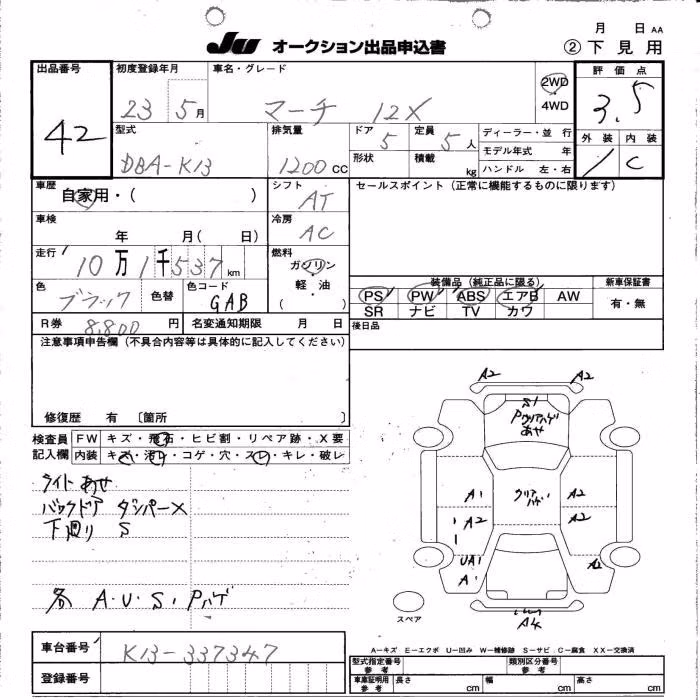 月 日 AA
JU オークション出品申込書
② 下見用
出品番号 初度登録年月 車名・グレード 2WD 4WD 評価点
42 23 5月 マーチ 12X 3.5
型式 排気量 ドア 定員 ディーラー・並行 外装 内装
DBA-K13 1200 cc 5 5人 モデル年式 年 / C
形状 積載 kg ハンドル 左・右
車歴 自家用・( ) シフト AT セールスポイント (正常に機能するものに限ります)
車検 年 月( 日) 冷房 AC
走行 10万1千537 km 燃料 ガソリン 軽油 ( )
色 ブラック 色替 色コード GAB
装備品 (純正品に限る) 新車保証書
PS PW ABS エアB AW 有・無
SR ナビ TV カワ
R券 8,800 円 名変通知期限 月 日 後日品
注意事項申告欄 (不具合内容等は具体的に記入してください)
修復歴 有 〔箇所 〕
検査員記入欄 FW キズ・飛石・ヒビ割・リペア跡・X要
内装 キズ・汚レ・コゲ・穴・スレ・キレ・破レ
ライト あせ
バックドア ダンパーX
下廻り S
各 A・U・S・Pハゲ
A2 A2
S1
Pクリアハゲ
あせ
A1 クリアハゲ A2
A2 A2
UA1 A2
A1
A4
スペア
A-キズ E-エクボ U-凹み W-補修跡 S-サビ C-腐食 XX-交換済
車台番号 K13-337347
登録番号
型式指定番号 参考 類別区分番号 参考
車庫証明用 参考 長さ cm 幅 cm 高さ cm